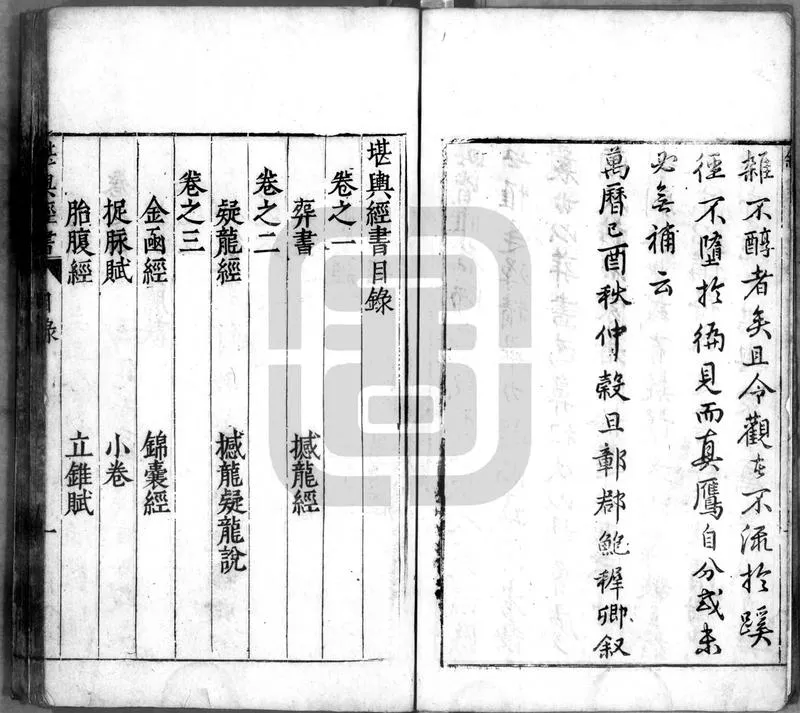 雜不醇者矣且令觀者不流於蹊
徑不墮於偏見而真鷹自分或未
必無補云
萬曆己酉秋仲穀旦鄣郡鮑穉卿叙
堪輿經書目錄
卷之一
葬書 撼龍經
卷之二
疑龍經 撼龍疑龍說
卷之三
金函經 錦囊經
捉脉賦 小卷
胎腹經 立錐賦
堪輿經書 目錄 一